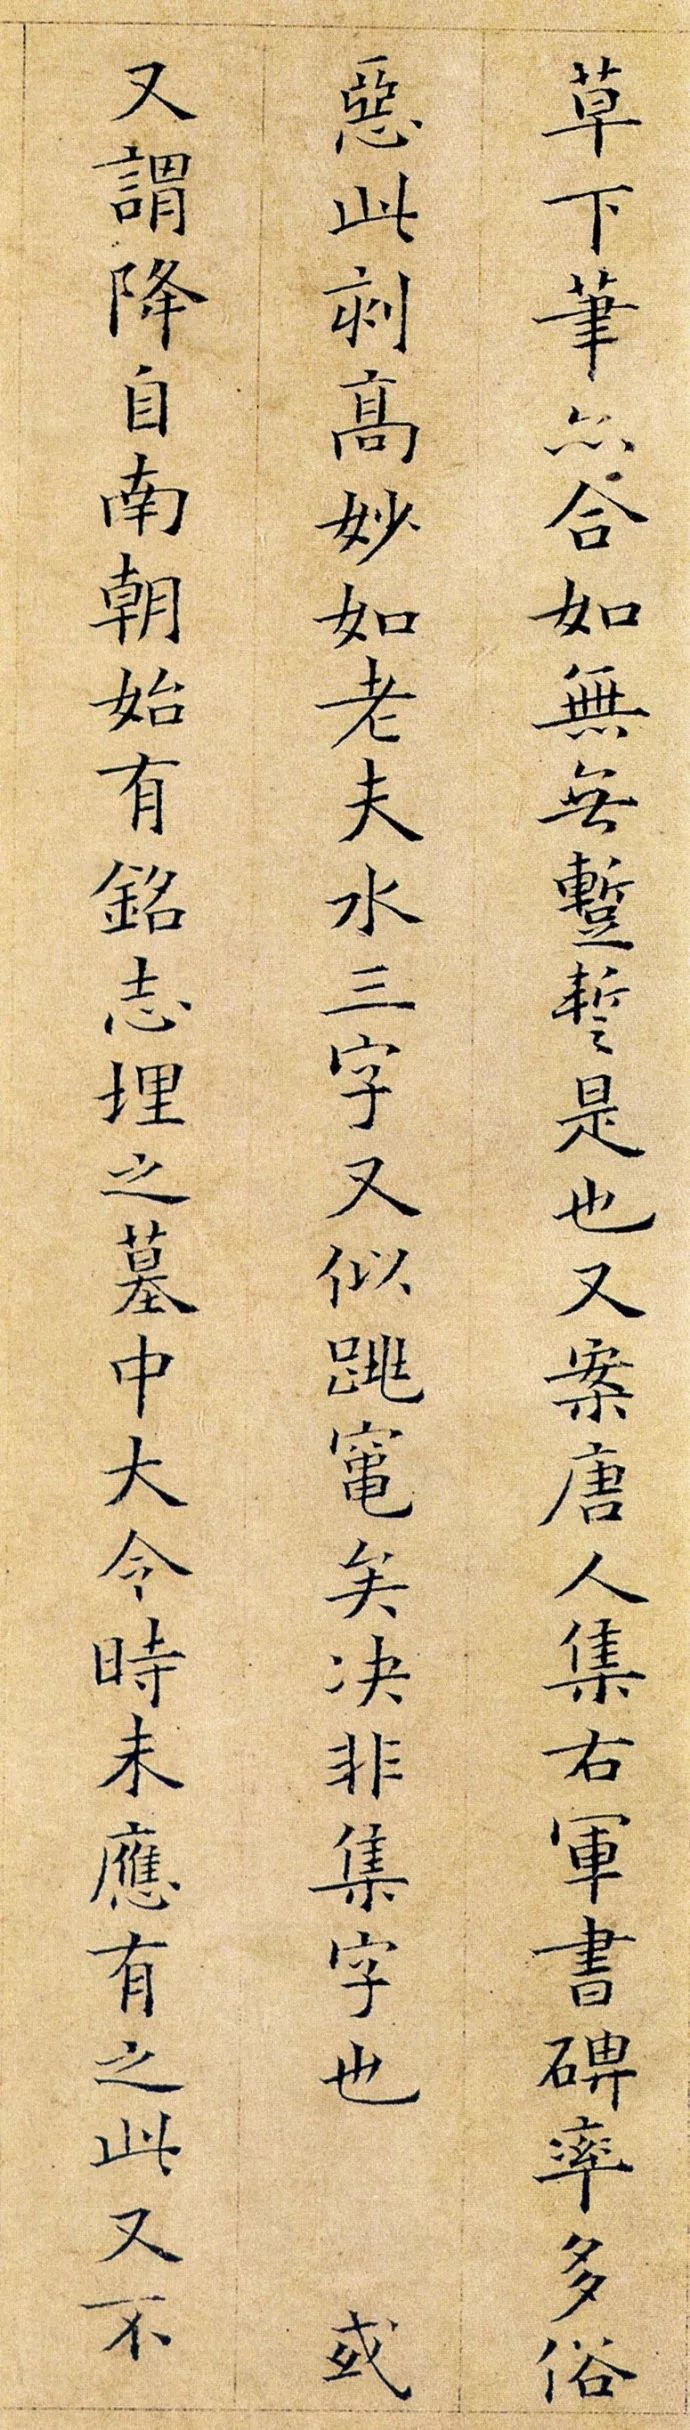 草下筆亦合如無无蹔誓是也又案唐人集右軍書碑率多俗
惡此刻高妙如老夫水三字又似跳竈矣决非集字也 或
又謂降自南朝始有銘志埋之墓中大令時未應有之此又不